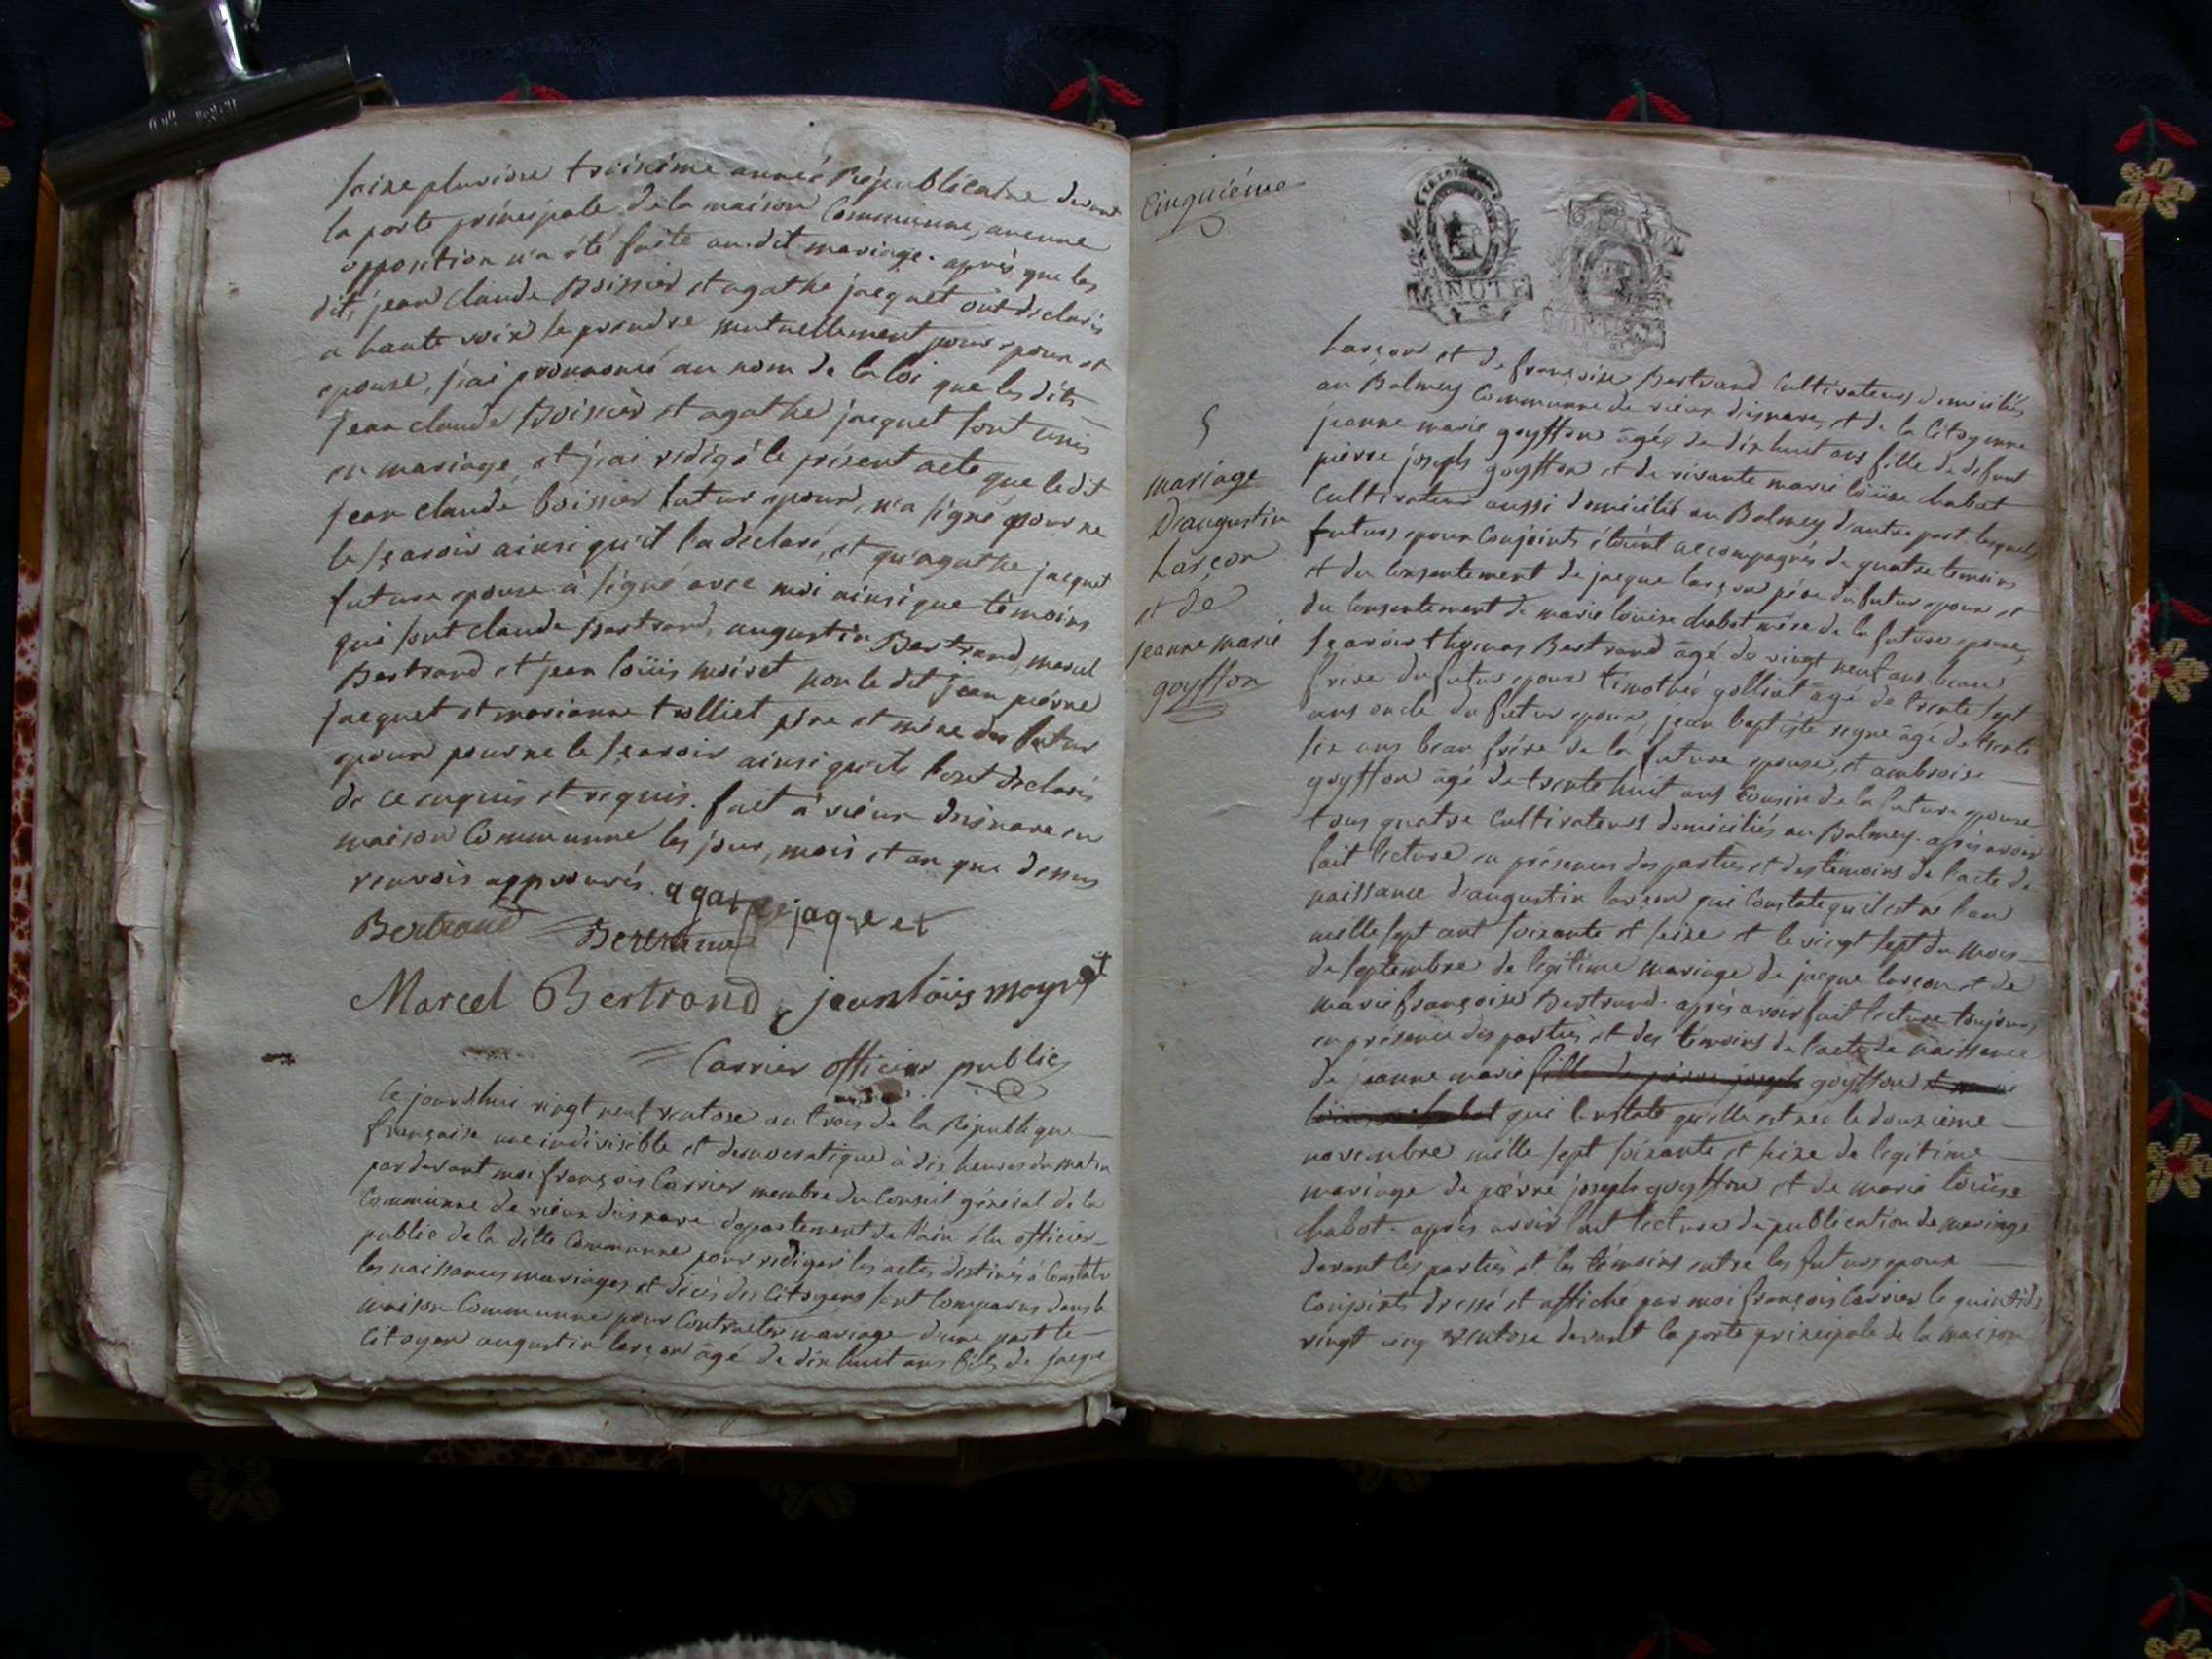 seize pluviose troisième année Républicaine devant
la porte principale de la maison Commune, aucune
opposition n'a été faite audit mariage. après que les
dits jean Claude Boissier et agathe jacquet ont déclarés
a haute voix se prendre mutuellement pour epoux et
epouse, j'ai prononcé au nom de la loi que les dits
jean claude Boissier et agathe jacquet sont unis
en mariage, et j'ai rédigé le présent acte que le dit
jean claude boissier futur epoux, n'a signé pour ne
le sçavoir ainsi qu'il l'a declaré, et qu'agathe jacquet
future epouse à signé avec moi ainsi que témoins
qui sont claude Bertrand, augustin Bertrand, marcel
Bertrand et jean loüis moiret non le dit jean pierre
jacquet et marianne tolliet père et mère du futur
epoux pour ne le sçavoir ainsi qu'ils l'ont declarés
de ce enquis et requis. fait à vieux d'isenave en
maison Commune les jour, mois et an que dessus
renvois approuvés. agathe jaquet
Bertrand Bertrand
Marcel Bertrand jean loüis moyret
Carrier officier public
Ce jourd'hui vingt neuf ventose an trois de la République
française une indivisible et democratique à dix heures du matin
pardevant moi françois Carrier membre du Conseil général de la
Commune de vieux disenave departement de l'ain élu officier
public de la ditte Commune pour rediger les actes destinés à Constater
les naissances mariages et décès des Citoyens sont Comparus dans la
maison Commune pour Contracter mariage d'une part le
Citoyen augustin larçon âgé de dix huit ans fils de jacque
Cinquiéme
MINUTE
5
mariage
D'augustin
Larçon
et de
jeanne marie
goyffon
Larçon et de françoise Bertrand Cultivateurs domiciliés
au Balmey Commune de vieux disenave, et de la Citoyenne
jeanne marie goyffon âgée de dix huit ans fille de defunt
pierre joseph goyffon et de vivante marie loüise chabot
Cultivateurs aussi domiciliés au Balmey d'autre part lesquels
futurs epoux Conjoints étoient accompagnés de quatre temoins
et du Consentement de jacque larçon père du futur epoux et
du Consentement de marie loüise chabot mère de la future epouse,
sçavoir thomas Bertrand âgé de vingt neuf ans beau
frere du futur epoux timothée golliet âgé de trente sept
ans oncle du futur epoux, jean baptiste âgé de trente
six ans beau frère de la future epouse, et ambroise
goyffon âgé de trente huit ans Cousin de la future epouse
tous quatre Cultivateurs domiciliés au Balmey. après avoir
fait lecture en présence des parties et des temoins de l'acte de
naissance d'augustin larçon qui Constate qu'il est né l'an
mille sept cent soixante et seize et le vingt sept du mois
de septembre de legitime mariage de jacque larçon et de
marie françoise Bertrand. après avoir fait lecture toujours
en présence des parties et des témoins de l'acte de naissance
de jeanne marie fille de pierre joseph goyffon
qui Constate qu'elle est née le douzième
novembre mille sept soixante et seize de legitime
mariage de pierre joseph goyffon et de marie loüise
chabot. après avoir fait lecture de publication de mariage
devant les parties et les témoins entre les futurs epoux
Conjoints dressé et affiché par moi françois Carrier le quintidi
vingt cinq ventose devant la porte principale de la maison